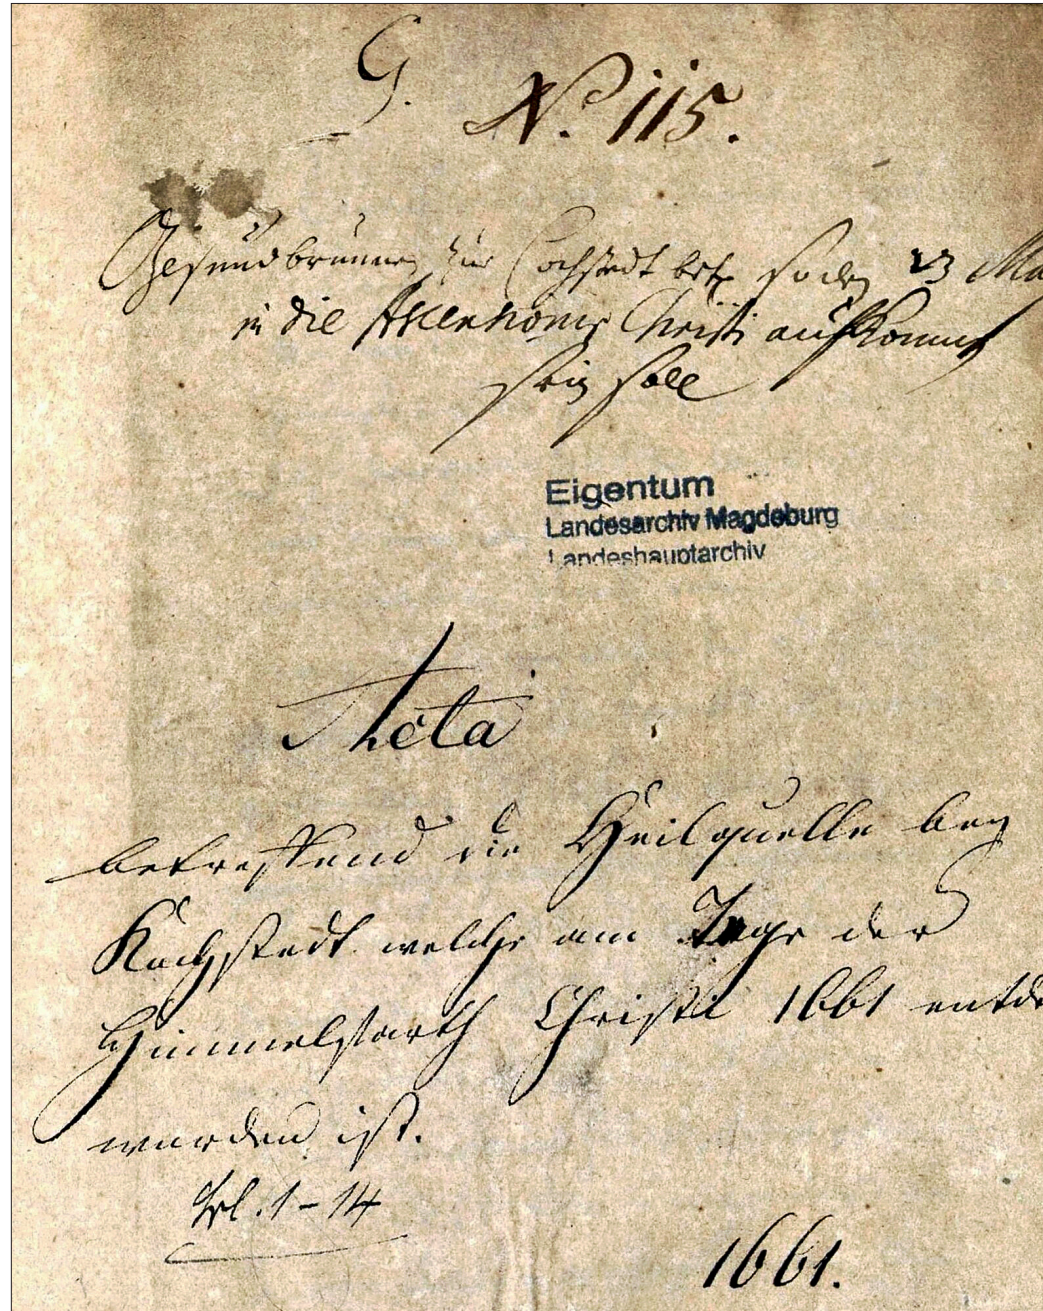 G. N. 115.
Gesundbrunnen zu Cochstedt betr. so den 23 Ma
in die Ascensionis Christi aufkommen
sein solle
Eigentum
Landesarchiv Magdeburg
Landeshauptarchiv
Acta
betreffend die Heilquelle bey
Kochstedt welche am Tage der
Himmelfarth Christi 1661 entde
worden ist.
Bl. 1-14
1661.